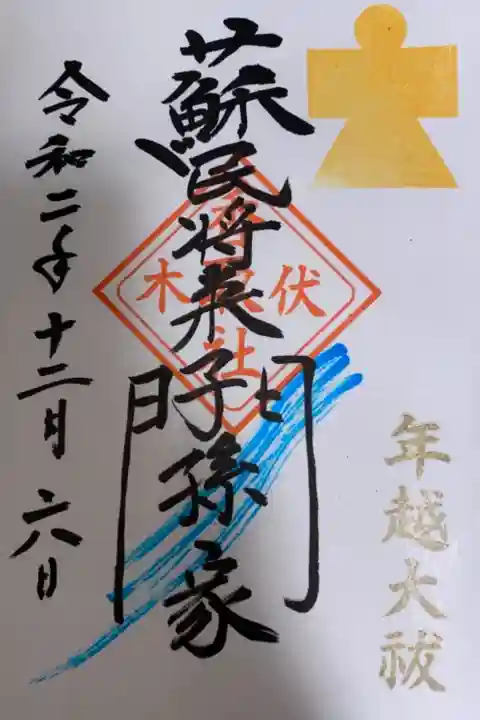 年越大祓
蘇民将来子孫家門
伏木
社
令和二年十二月六日